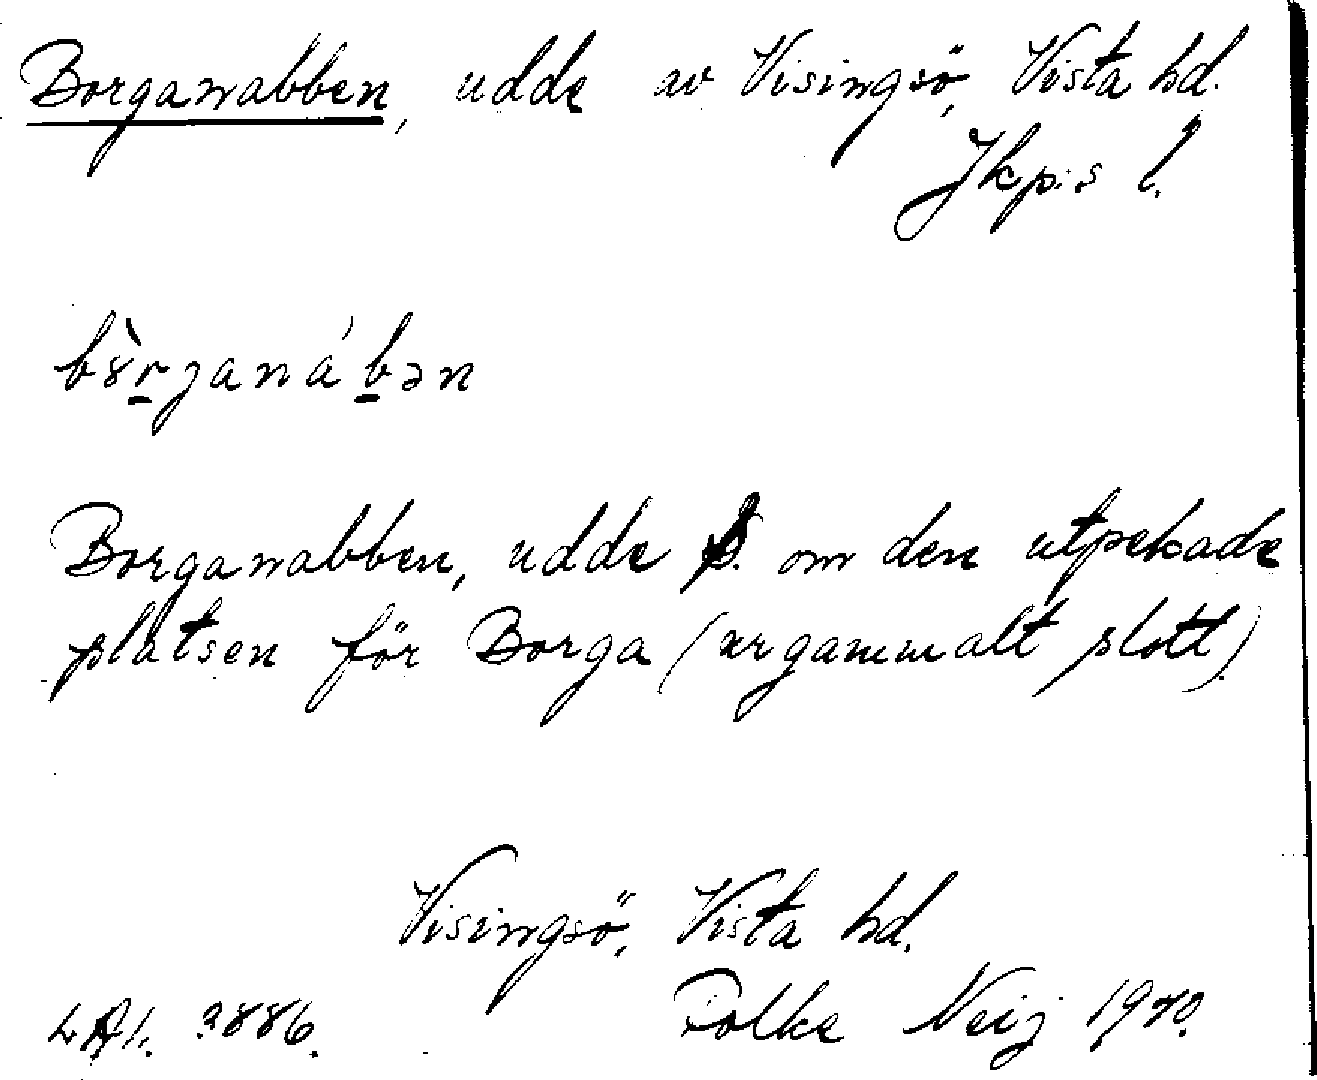 Borganabben, udde av Visingsö, Vista hd.
Jkp:s l.
bòrjanábən
Borganabben, udde S. om den utpekade
platsen för Borga (urgammalt slott).
Visingsö, Vista hd.
LAL. 3886. Folke Neij 1970.